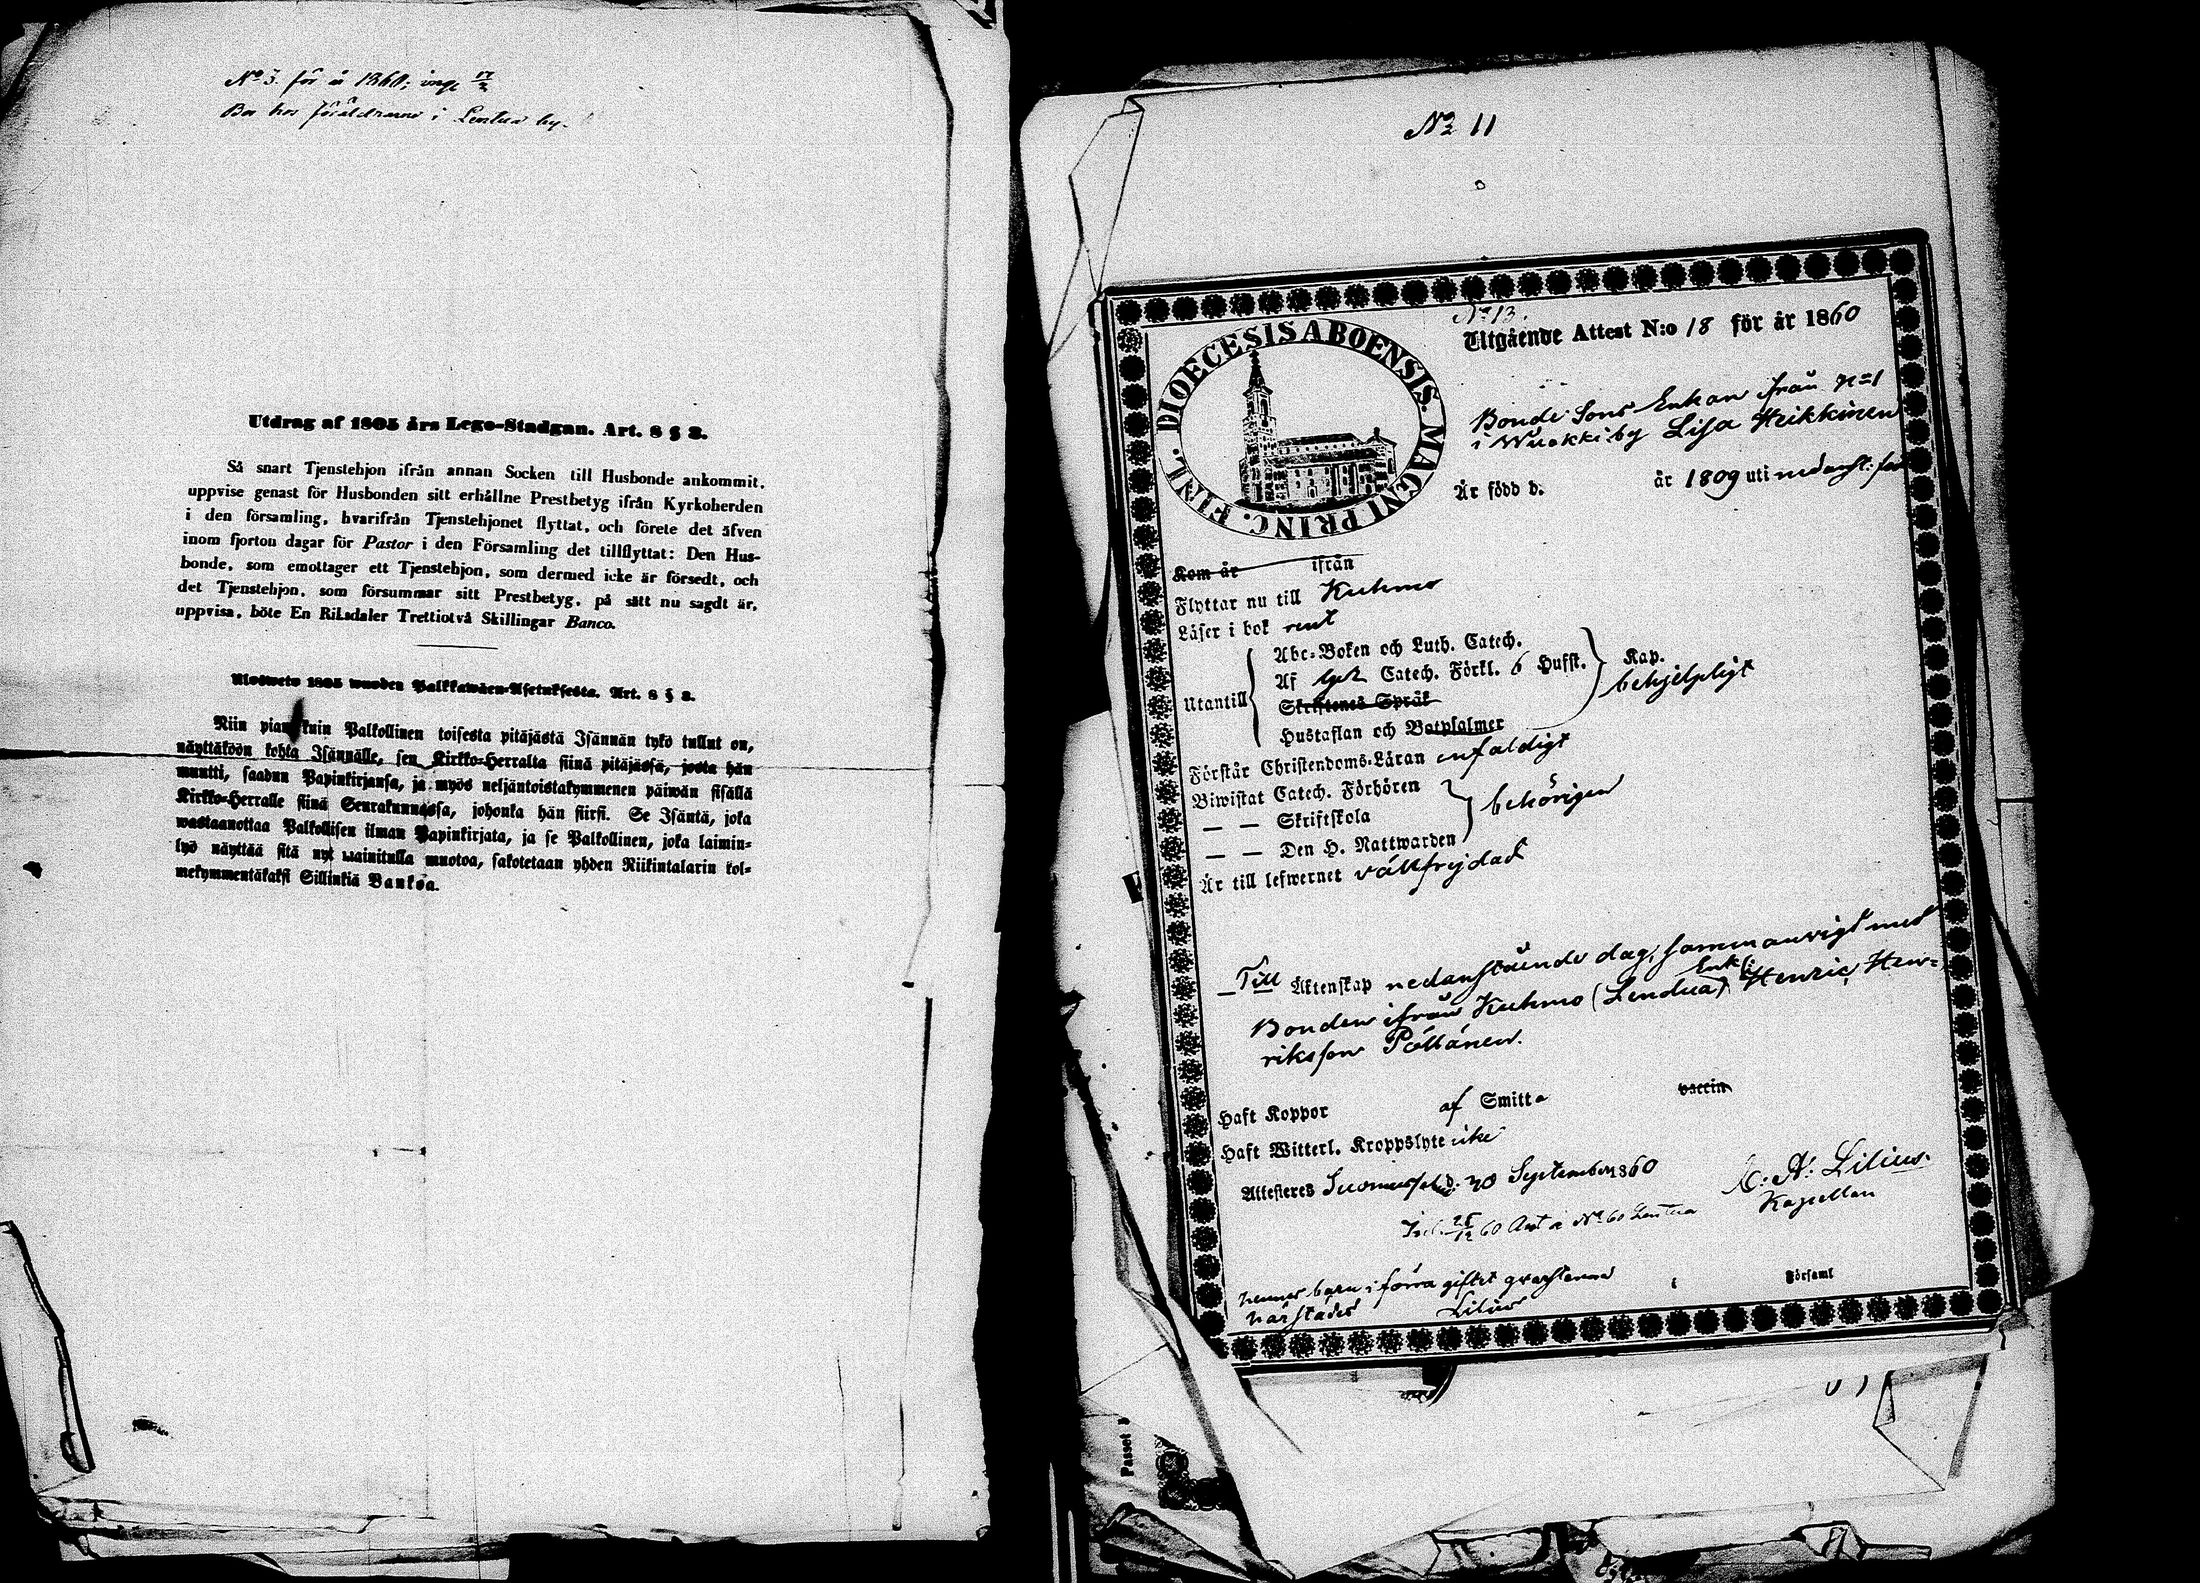 No 3. för år 1860; ingf 17/2
Bor hos föräldrarne i Lentua by.
Utdrag af 1805 års Lego-Stadgan. Art. 8 § 3.
Så snart Tjenstehjon ifrån annan Socken till Husbonde ankommit,
uppvise genast för Husbonden sitt erhållne Prestbetyg ifrån Kyrkoherden
i den församling, hvarifrån Tjenstehjonet flyttat, och förete det äfven
inom fjorton dagar för Pastor i den Församling det tillflyttat: Den Hus-
bonde, som emottager ett Tjenstehjon, som dermed icke är försedt, och
det Tjenstehjon, som försummar sitt Prestbetyg, på sätt nu sagdt är,
uppvisa, böte En Riksdaler Trettiotvå Skillingar Banco.
Ulosweto 1805 wuoden Palkkawäen-Asetuksesta. Art. 8 § 3.
Niin pian kuin Palkollinen toisesta pitäjästä Isännän tykö tullut on,
näyttäköön kohta Isännälle, sen Kirkko-Herralta siinä pitäjässä, josta hän
muutti, saadun Papinkirjansa, ja myös neljäntoistakymmenen päiwän sisällä
Kirkko-Herralle siinä Seurakunnassa, johonka hän siirsi. Se Isäntä, joka
wastaanottaa Palkollisen ilman Papinkirjata, ja se Palkollinen, joka laimin-
lyö näyttää sitä nyt mainitulla muotoa, sakotetaan yhden Riikintalarin kol-
mekymmentäkaksi Sillinkiä Bankoa.
No 11
No 13.
Utgående Attest N:o 18 för år 1860
DIOECESIS ABOENSIS. MAGNI PRINC. FINL.
Bonde Sons Enkan från No 1
i Wuokki by Lisa Heikkinen
Är född d. år 1809 uti nedanst: för
Kom år ifrån
Flyttar nu till Kuhmo
Läser i bok rent
Utantill
Abc-Boken och Luth. Catech.
Af Catech. Förkl. 6 Hufst.
Skriftenes Språk
Hustaflan och Botpsalmer
Kap.
behjelpligt
Förstår Christendoms-Läran enfaldigt
Biwistat Catech. Förhören
— — Skriftskola
— — Den H. Nattwarden
behörigen
Är till lefwernet välfrejdad
Till Äktenskap nedanstående dag, sammanvigt med
Bonden ifrån Kuhmo (Lendua) Enkl: Henric Hen-
riksson Pöllänen.
Haft Koppor af Smitta vaccin
Haft Witterl. Kroppslyte icke
Attesteres Suomussal. d. 20 September 1860
C. A. Lilius.
Kapellan
25/12 60 No 60 Lentua
hennes barn i förra giftet qvarstanna
härstädes Lilius
i Församl
Passet